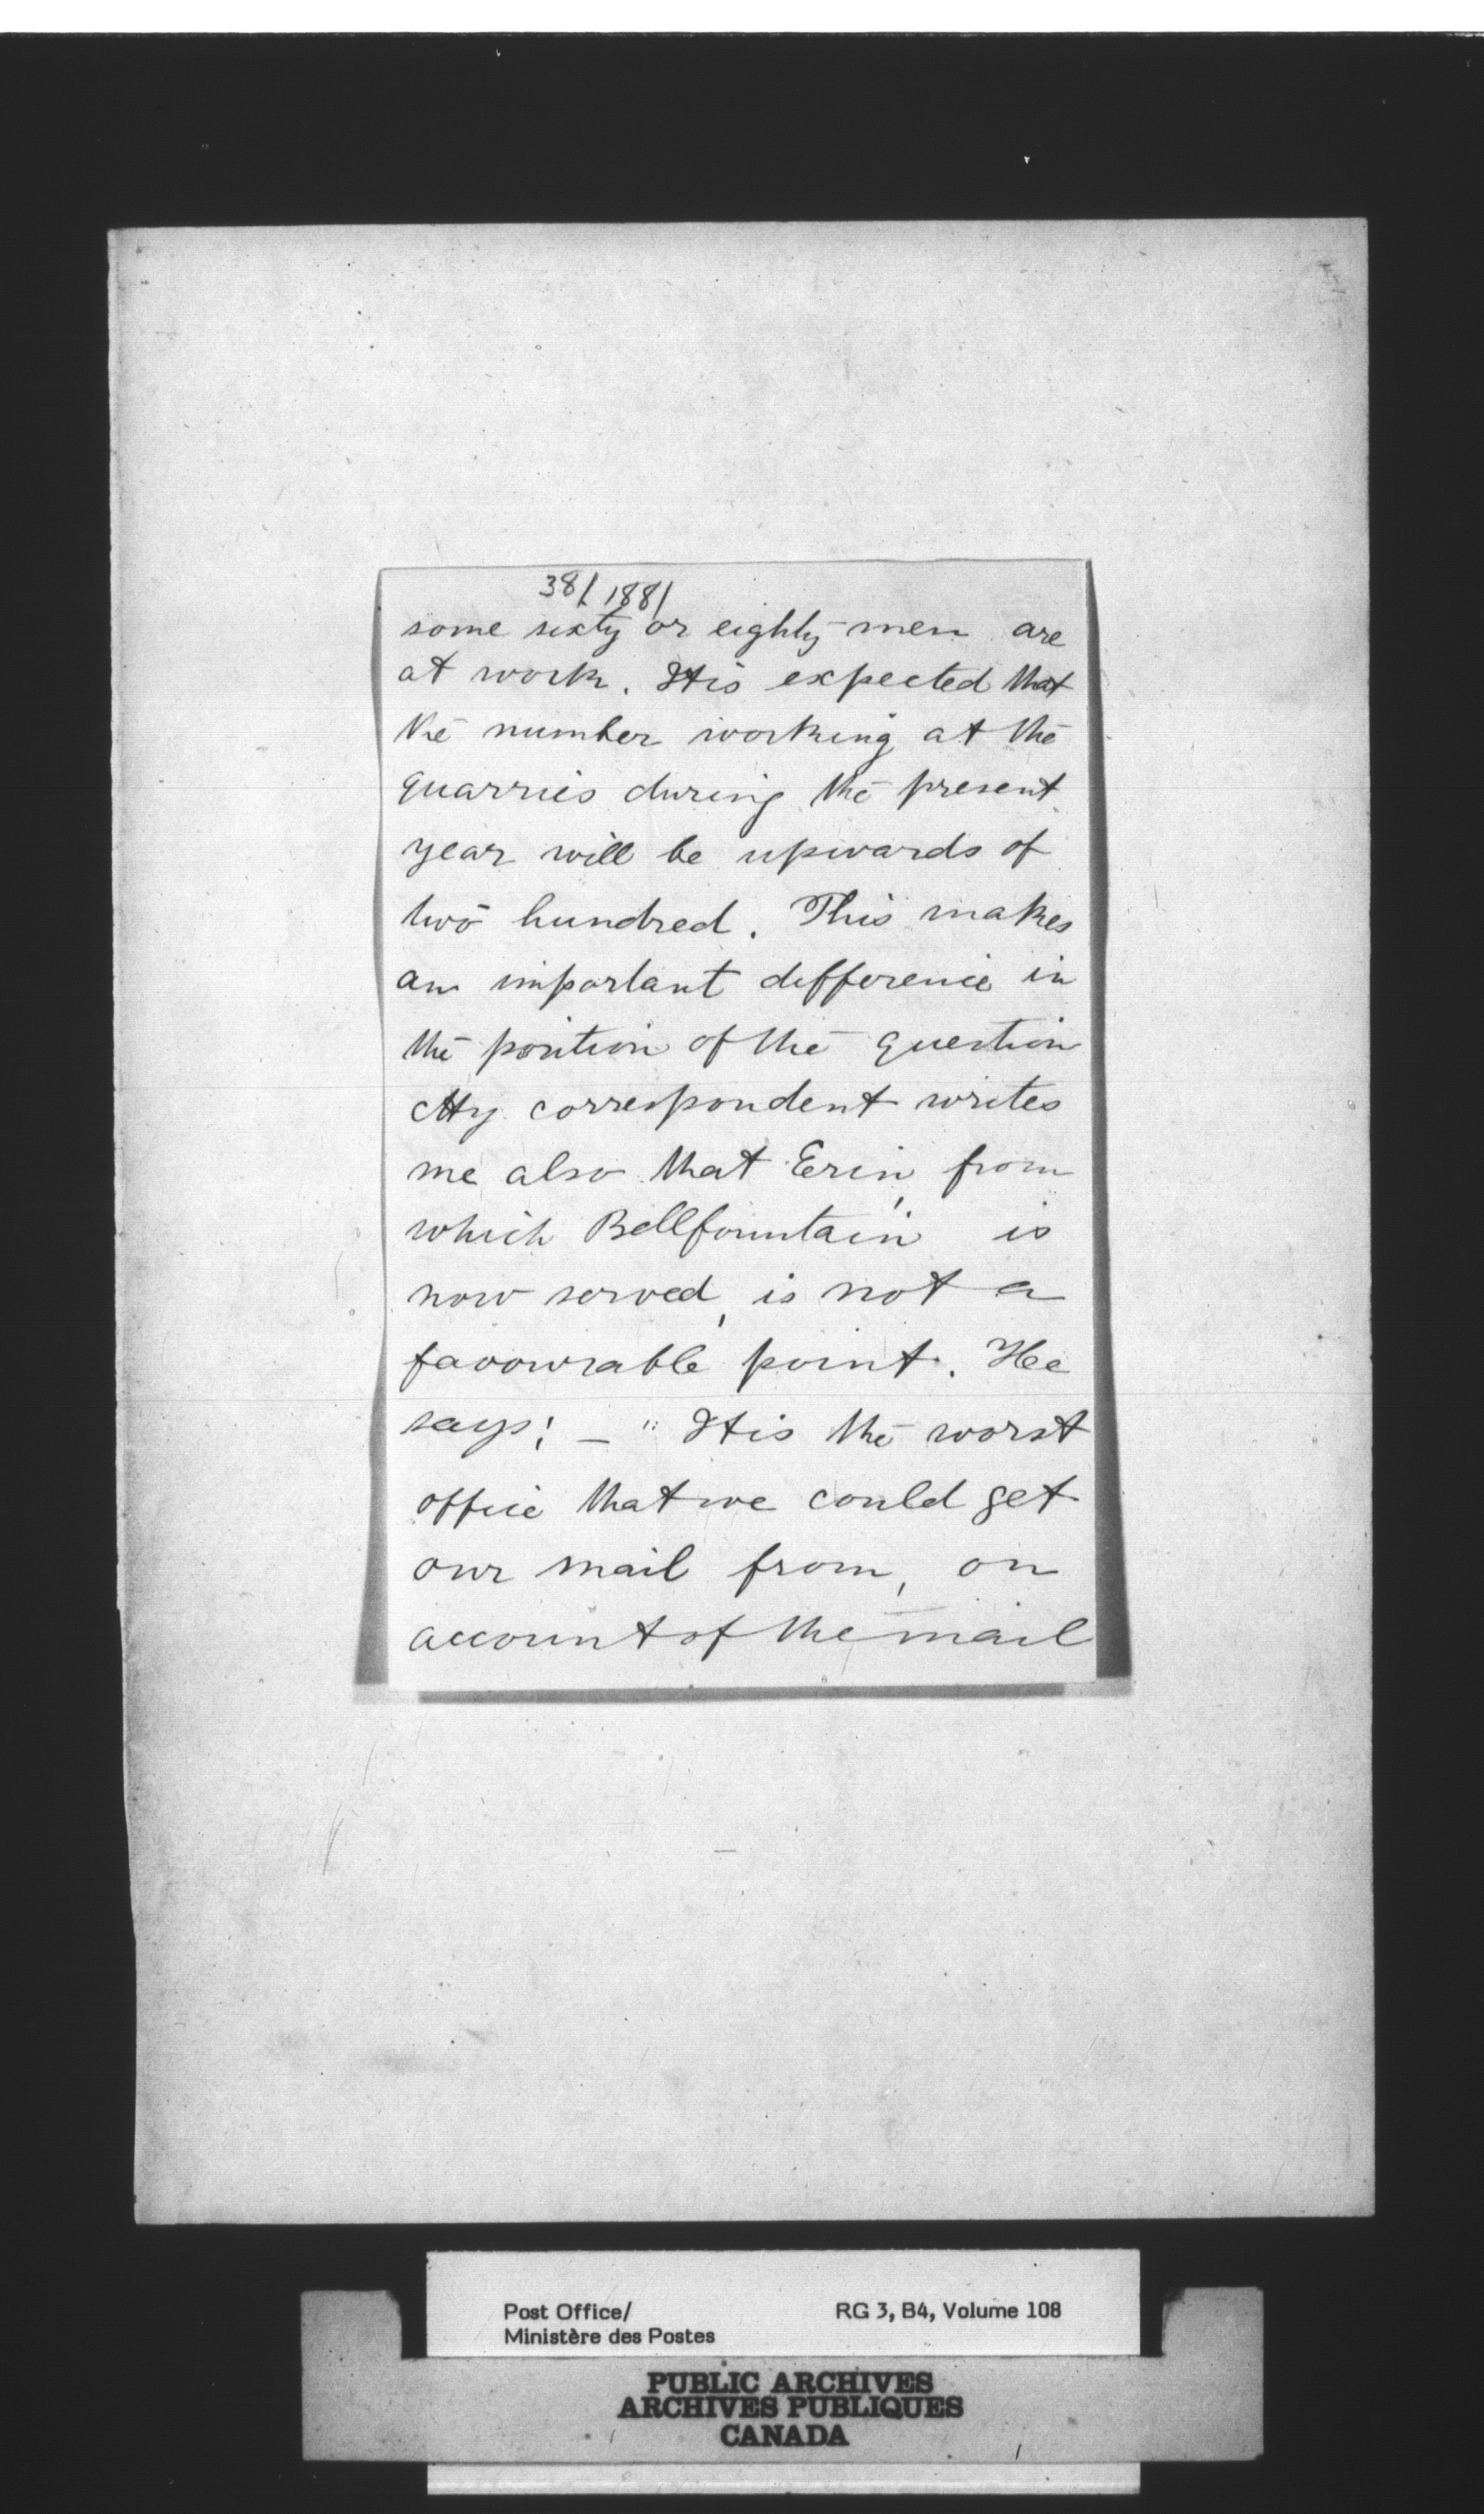 38/1881
some sixty or eighty men are
at work. It is expected that
the number working at the
quarries during the present
year will be upwards of
two hundred. This makes
an important difference in
the position of the question
My correspondent writes
me also that Erin, from
which Bellfountain is
now served, is not a
favourable point. He
says: — "It is the worst
office that we could get
our mail from, on
account of the mail
Post Office/ RG 3, B4, Volume 108
Ministère des Postes
PUBLIC ARCHIVES
ARCHIVES PUBLIQUES
CANADA